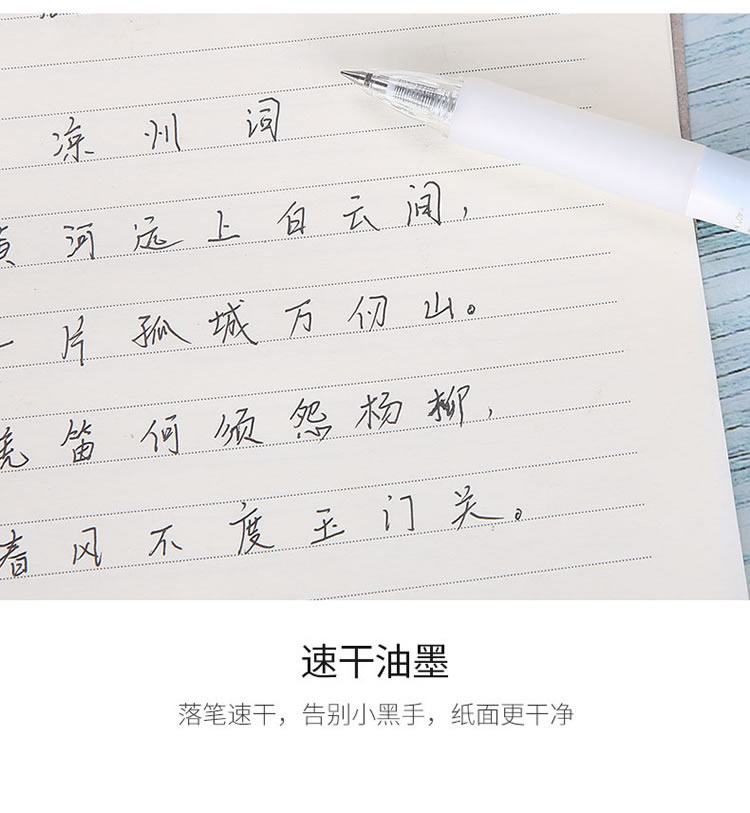 凉州词
黄河远上白云间，
一片孤城万仞山。
羌笛何须怨杨柳，
春风不度玉门关。
速干油墨
落笔速干，告别小黑手，纸面更干净